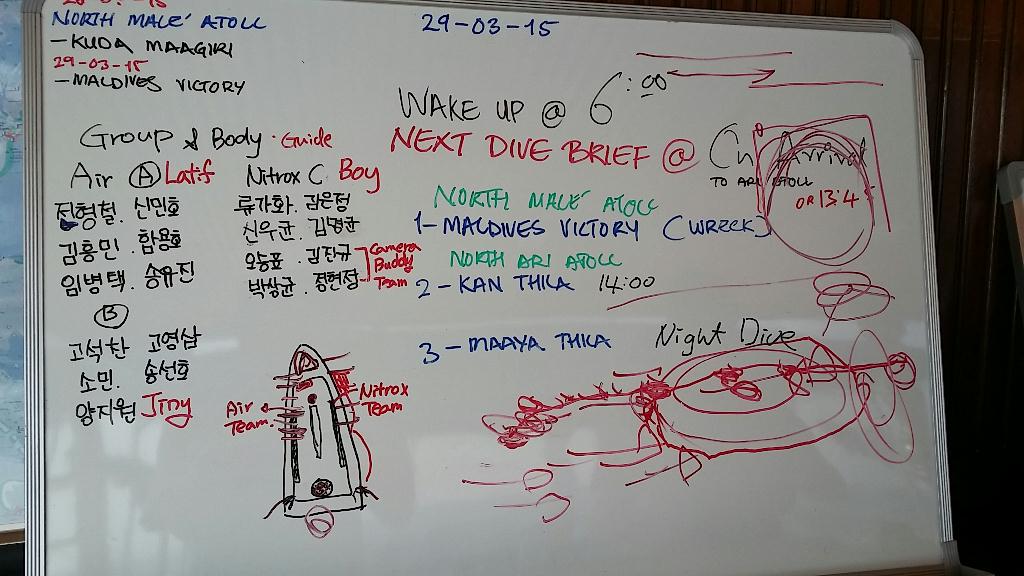 NORTH MALE' ATOLL
29-03-15
- KUDA MAAGIRI
29-03-15
- MALDIVES VICTORY
WAKE UP @ 6:00
Group & Body · Guide
NEXT DIVE BRIEF @ On Arrival
TO ARI ATOLL
OR 13:4
Air Ⓐ Latif
Nitrox C Boy
진형철. 신민호
김홍민. 함용호
임병택. 송유진
류가화. 권은정
신우균. 김명균
오승표. 김진규
박상균. 정현정
Camera
Buddy
Team
Ⓑ
고석찬 고영삼
소민. 송선호
양지원 Jiny
NORTH MALE' ATOLL
1- MALDIVES VICTORY (WRECK)
NORTH ARI ATOLL
2- KAN THILA 14:00
3- MAAYA THILA Night Dive
Air
Team.
Nitrox
Team